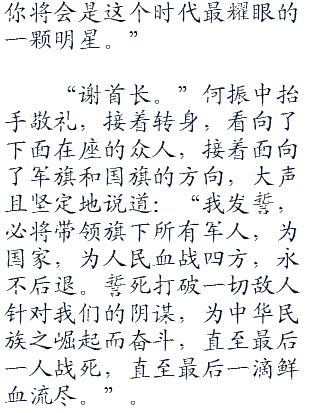 你将会是这个时代最耀眼的
一颗明星。”
“谢首长。”何振中抬
手敬礼，接着转身，看向了
下面在座的众人，接着面向
了军旗和国旗的方向，大声
且坚定地说道：“我发誓，
必将带领旗下所有军人，为
国家，为人民血战四方，永
不后退。誓死打破一切敌人
针对我们的阴谋，为中华民
族之崛起而奋斗，直至最后
一人战死，直至最后一滴鲜
血流尽。”。